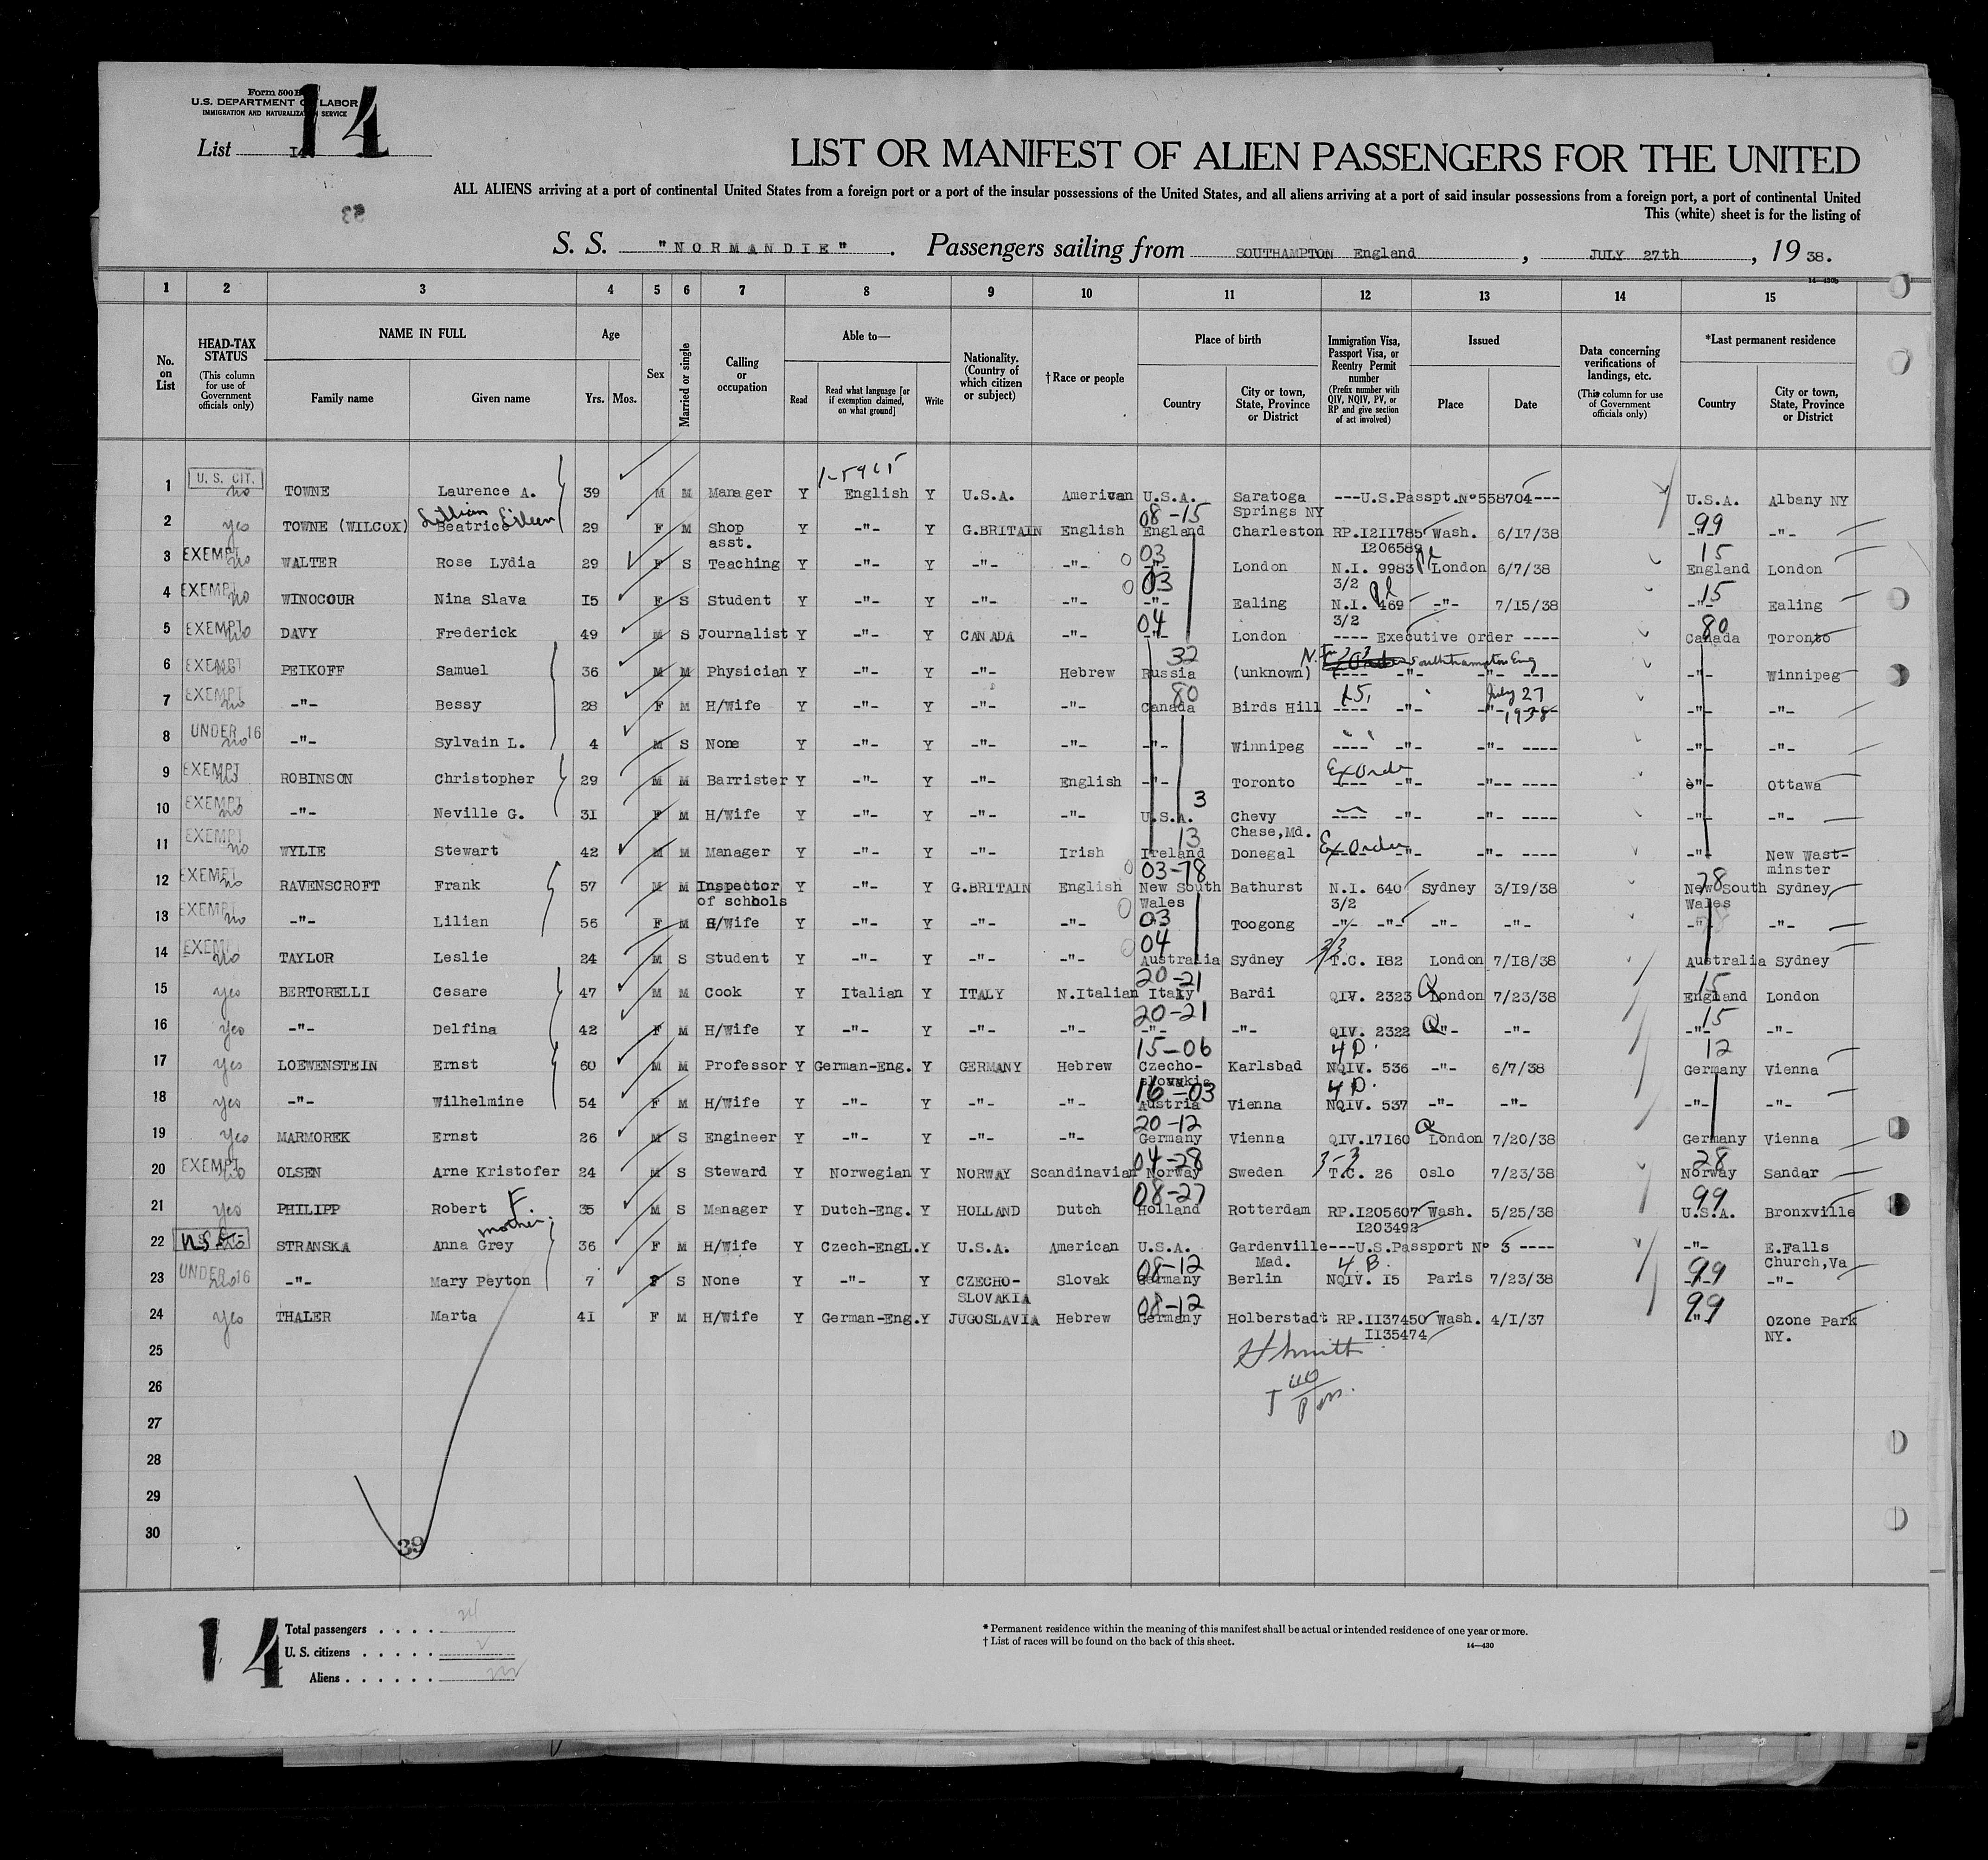 Form 500 B
U.S. DEPARTMENT OF LABOR
IMMIGRATION AND NATURALIZATION SERVICE
List 14
14
LIST OR MANIFEST OF ALIEN PASSENGERS FOR THE UNITED
ALL ALIENS arriving at a port of continental United States from a foreign port or a port of the insular possessions of the United States, and all aliens arriving at a port of said insular possessions from a foreign port, a port of continental United
This (white) sheet is for the listing of
S. S. "NORMANDIE". Passengers sailing from SOUTHAMPTON England, JULY 27th, 19 38.
14—430b
1 2 3 4 5 6 7 8 9 10 11 12 13 14 15
No. on List
HEAD-TAX STATUS (This column for use of Government officials only)
NAME IN FULL Family name Given name
Age Yrs. Mos.
Sex
Married or single
Calling or occupation
Able to— Read Read what language [or if exemption claimed, on what ground] Write
Nationality. (Country of which citizen or subject)
†Race or people
Place of birth Country City or town, State, Province or District
Immigration Visa, Passport Visa, or Reentry Permit number (Prefix number with QIV, NQIV, PV, or RP and give section of act involved)
Issued Place Date
Data concerning verifications of landings, etc. (This column for use of Government officials only)
*Last permanent residence Country City or town, State, Province or District
1-5965
1 U. S. CIT. no TOWNE Laurence A. 39 M M Manager Y English Y U.S.A. American U.S.A. Saratoga Springs NY ---U.S.Passpt.Nº558704--- U.S.A. Albany NY
2 yes TOWNE (WILCOX) Lillian Eileen Beatrice 29 F M Shop asst. Y -"- Y G.BRITAIN English 08-15 England Charleston RP.I2II785 I206589 Wash. 6/17/38 99 -"- -"-
3 EXEMPT no WALTER Rose Lydia 29 F S Teaching Y -"- Y -"- -"- 03 -"- London N.I. 9983 3/2 London 6/7/38 15 England London
4 EXEMPT no WINOCOUR Nina Slava I5 F S Student Y -"- Y -"- -"- 03 -"- Ealing N.I. 469 3/2 -"- 7/15/38 15 -"- Ealing
5 EXEMPT no DAVY Frederick 49 M S Journalist Y -"- Y CANADA -"- 04 -"- London ---- Executive Order ---- 80 Canada Toronto
6 EXEMPT no PEIKOFF Samuel 36 M M Physician Y -"- Y -"- Hebrew 32 Russia (unknown) Southampton Eng ---- -"- -"- ---- -"- Winnipeg
7 EXEMPT no -"- Bessy 28 F M H/Wife Y -"- Y -"- -"- 80 Canada Birds Hill ---- -"- July 27 1938 -"- -"-
8 UNDER 16 no -"- Sylvain L. 4 M S None Y -"- Y -"- -"- -"- Winnipeg ---- -"- -"- ---- -"- -"-
9 EXEMPT no ROBINSON Christopher 29 M M Barrister Y -"- Y -"- English -"- Toronto Ex Order ---- -"- -"-- ---- -"- Ottawa
10 EXEMPT no -"- Neville G. 3I F M H/Wife Y -"- Y -"- -"- 3 U.S.A. Chevy Chase,Md. ---- -"- -"- ---- -"- -"-
11 EXEMPT no WYLIE Stewart 42 M M Manager Y -"- Y -"- Irish 13 Ireland Donegal Ex Order -"- -"- ---- -"- New Wast-minster
12 EXEMPT no RAVENSCROFT Frank 57 M M Inspector of schools Y -"- Y G.BRITAIN English 03-78 New South Wales Bathurst N.I. 640 3/2 Sydney 3/19/38 78 New South Wales Sydney
13 EXEMPT no -"- Lilian 56 F M H/Wife Y -"- Y -"- -"- 03 Toogong -"- -"- -"- -"- -"- -"-
14 EXEMPT no TAYLOR Leslie 24 M S Student Y -"- Y -"- -"- 04 Australia Sydney 3/3 T.C. I82 London 7/18/38 Australia Sydney
15 yes BERTORELLI Cesare 47 M M Cook Y Italian Y ITALY N.Italian 20-21 Italy Bardi QIV. 2323 London 7/23/38 15 England London
16 yes -"- Delfina 42 F M H/Wife Y -"- Y -"- -"- 20-21 -"- -"- QIV. 2322 -"- -"- 15 -"- -"-
17 yes LOEWENSTEIN Ernst 60 M M Professor Y German-Eng. Y GERMANY Hebrew 15-06 Czecho-slovakia Karlsbad 4 D. NQIV. 536 -"- 6/7/38 12 Germany Vienna
18 yes -"- Wilhelmine 54 F M H/Wife Y -"- Y -"- -"- 16-03 Austria Vienna 4 D. NQIV. 537 -"- -"- -"- -"-
19 yes MARMOREK Ernst 26 M S Engineer Y -"- Y -"- -"- 20-12 Germany Vienna QIV.17160 London 7/20/38 Germany Vienna
20 EXEMPT no OLSEN Arne Kristofer 24 M S Steward Y Norwegian Y NORWAY Scandinavian 04-28 Norway Sweden 3-3 T.C. 26 Oslo 7/23/38 28 Norway Sandar
21 yes PHILIPP Robert F. 35 M S Manager Y Dutch-Eng. Y HOLLAND Dutch 08-27 Holland Rotterdam RP.I205607 I203492 Wash. 5/25/38 99 U.S.A. Bronxville
22 STRANSKA Anna Grey mother 36 F M H/Wife Y Czech-Engl. Y U.S.A. American U.S.A. Gardenville Mad. ---U.S.Passport Nº 3 ---- -"- E.Falls Church,Va
23 UNDER 16 no -"- Mary Peyton 7 F S None Y -"- Y CZECHO-SLOVAKIA Slovak 08-12 Germany Berlin 4.B. NQIV. I5 Paris 7/23/38 99 -"- -"-
24 yes THALER Marta 4I F M H/Wife Y German-Eng. Y JUGOSLAVIA Hebrew 08-12 Germany Holberstadt RP.II37450 II35474 Wash. 4/1/37 99 -"- Ozone Park NY.
25
26
27
28
29
30
39
14
Total passengers . . . . 24
U. S. citizens . . . . . 2
Aliens . . . . . . 22
* Permanent residence within the meaning of this manifest shall be actual or intended residence of one year or more.
† List of races will be found on the back of this sheet.
14—430